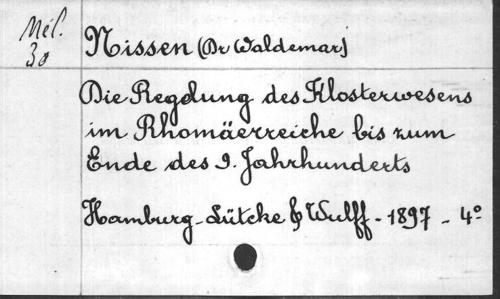 Mél.
30
Nissen (Dr Waldemar)
Die Regelung des Klosterwesens
im Rhomäerreiche bis zum
Ende des 9. Jahrhunderts
Hamburg - Lütcke & Wulff - 1897 - 4º